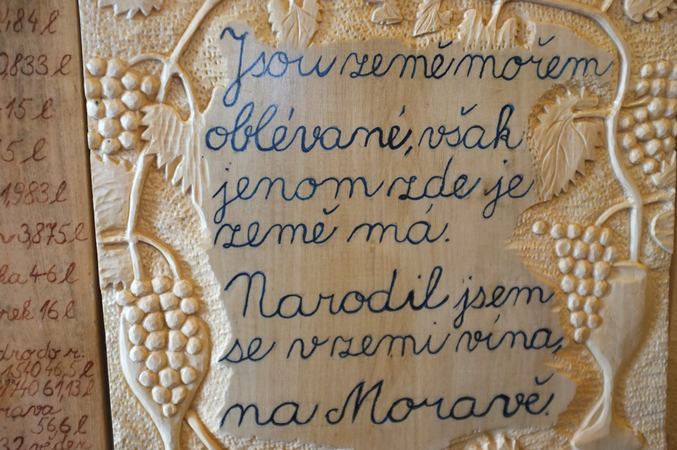 ,484 l
0,833 l
15 l
5 l
1,983 l
3,875 l
ka 46 l
rek 16 l
drodo r.
15 40 46,5 l
174061,13 l
rava
56,6 l
32 věder
Jsou země mořem
oblévané, však
jenom zde je
země má.
Narodil jsem
se v zemi vína,
na Moravě.